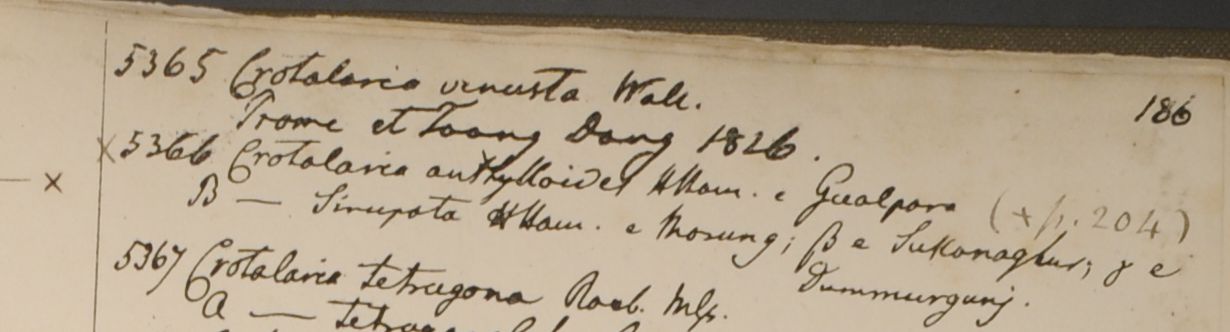 186
5365 Crotalaria venusta Wall.
Prome et Toong Dong 1826.
x 5366 Crotalaria anthylloides HHam. e Gualpara (x p. 204)
x B — Sirupata HHam. e Morung; β e Sukanaghur; γ e
Dummurgunj.
5367 Crotalaria tetragona Roxb. Mss.
a —